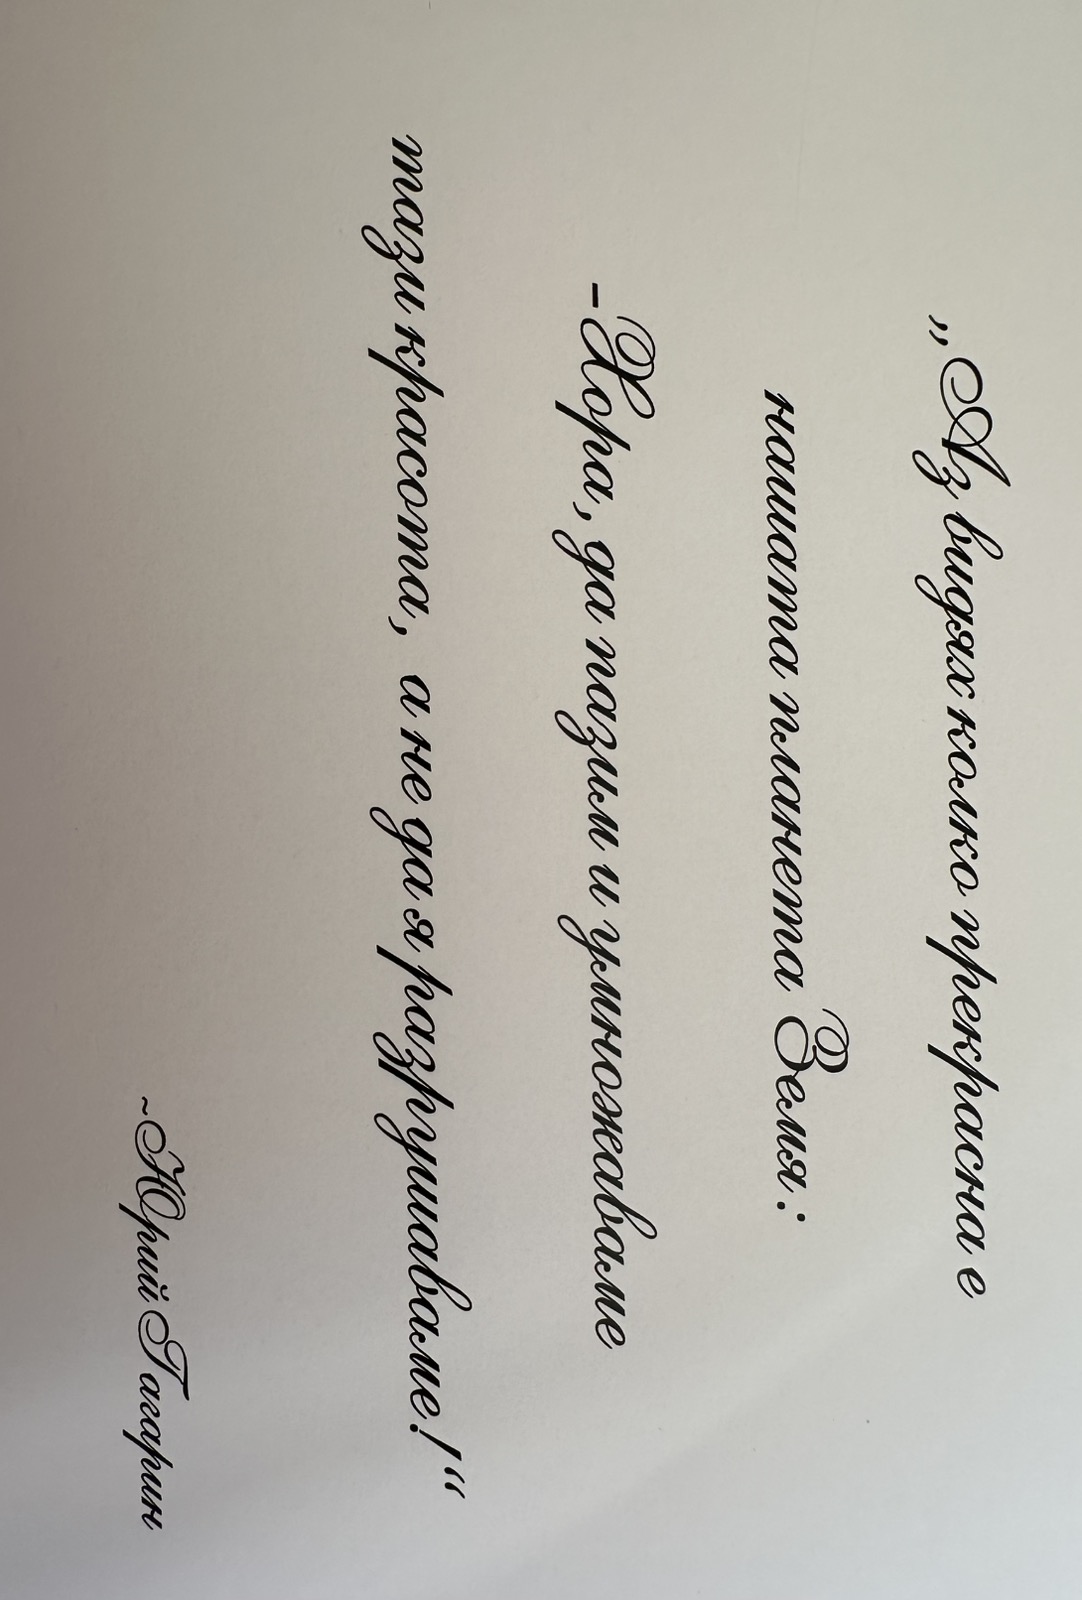 „Аз видях колко прекрасна е
нашата планета Земя:
-Хора, да пазим и умножаваме
тази красота, а не да я разрушаваме!“
~Юрий Гагарин